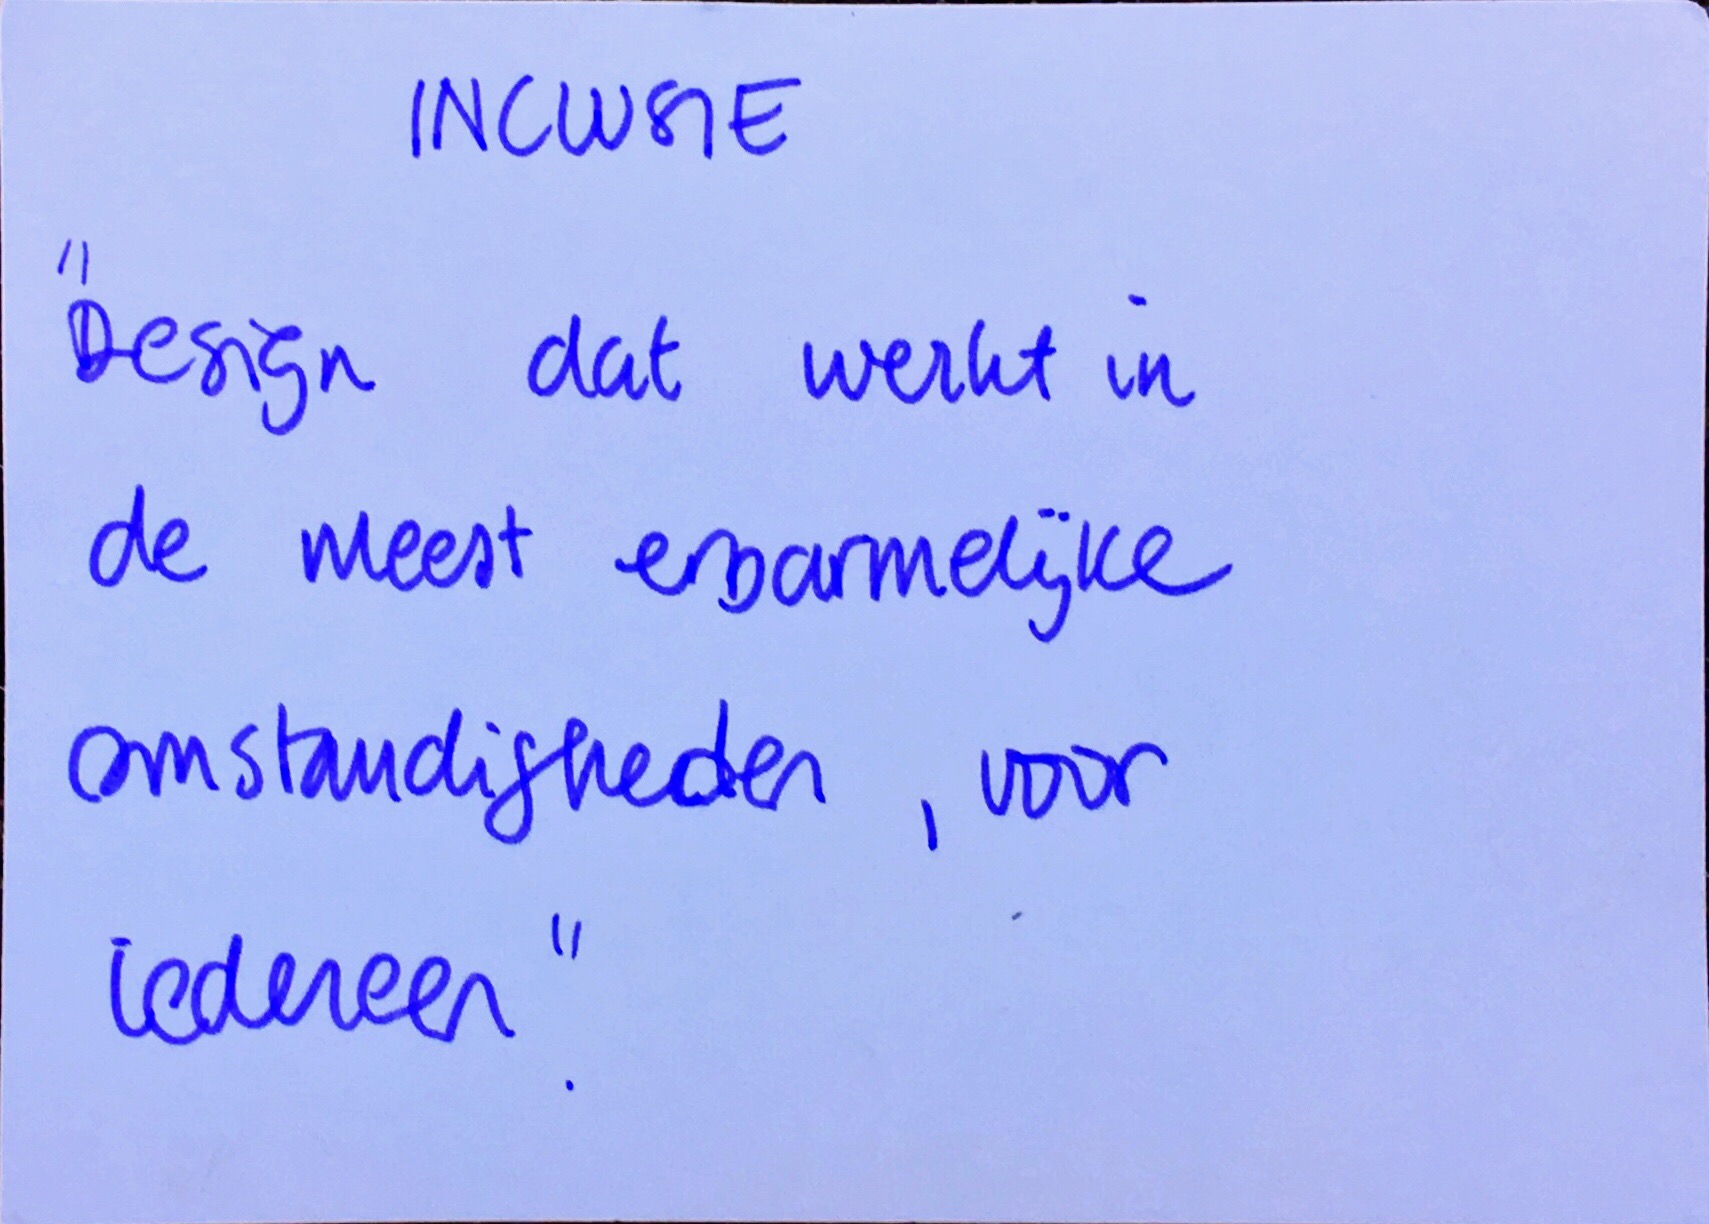 INCLUSIE
"Design dat werkt in
de meest erbarmelijke
omstandigheden, voor
iedereen".